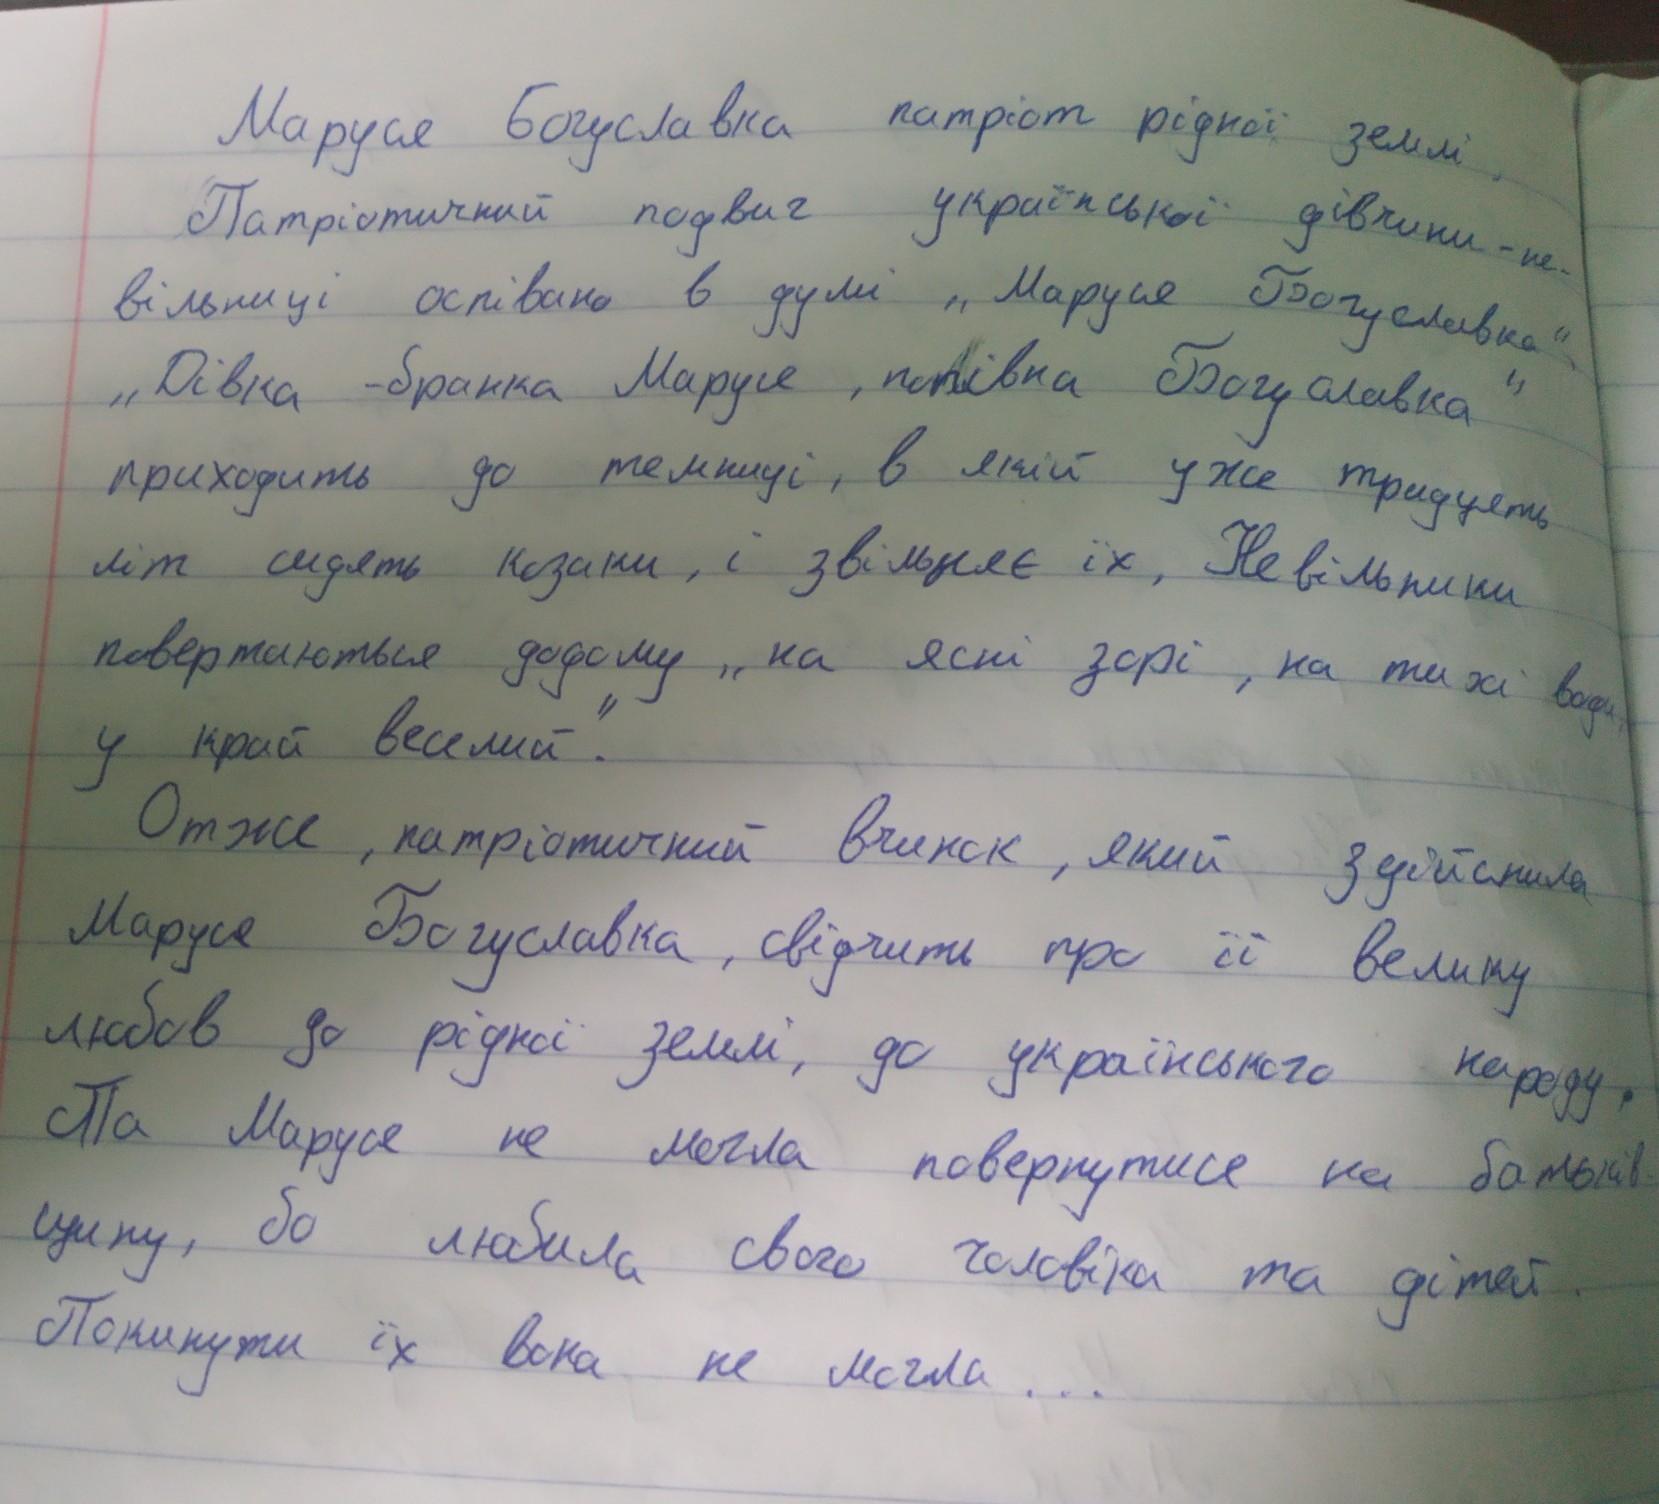 Маруся Богуславка патріот рідної землі.
Патріотичний подвиг української дівчини-не-
вільниці оспівано в думі „Маруся Богуславка"
„Дівка-бранка Маруся, попівна Богуславка"
приходить до темниці, в якій уже тридцять
літ сидять козаки, і звільняє їх. Невільники
повертаються додому „на ясні зорі, на тихі води,
у край веселий".
Отже, патріотичний вчинок, який здійснила
Маруся Богуславка, свідчить про її велику
любов до рідної землі, до українського народу.
Та Маруся не могла повернутися на батьків-
щину, бо любила свого чоловіка та дітей.
Покинути їх вона не могла...